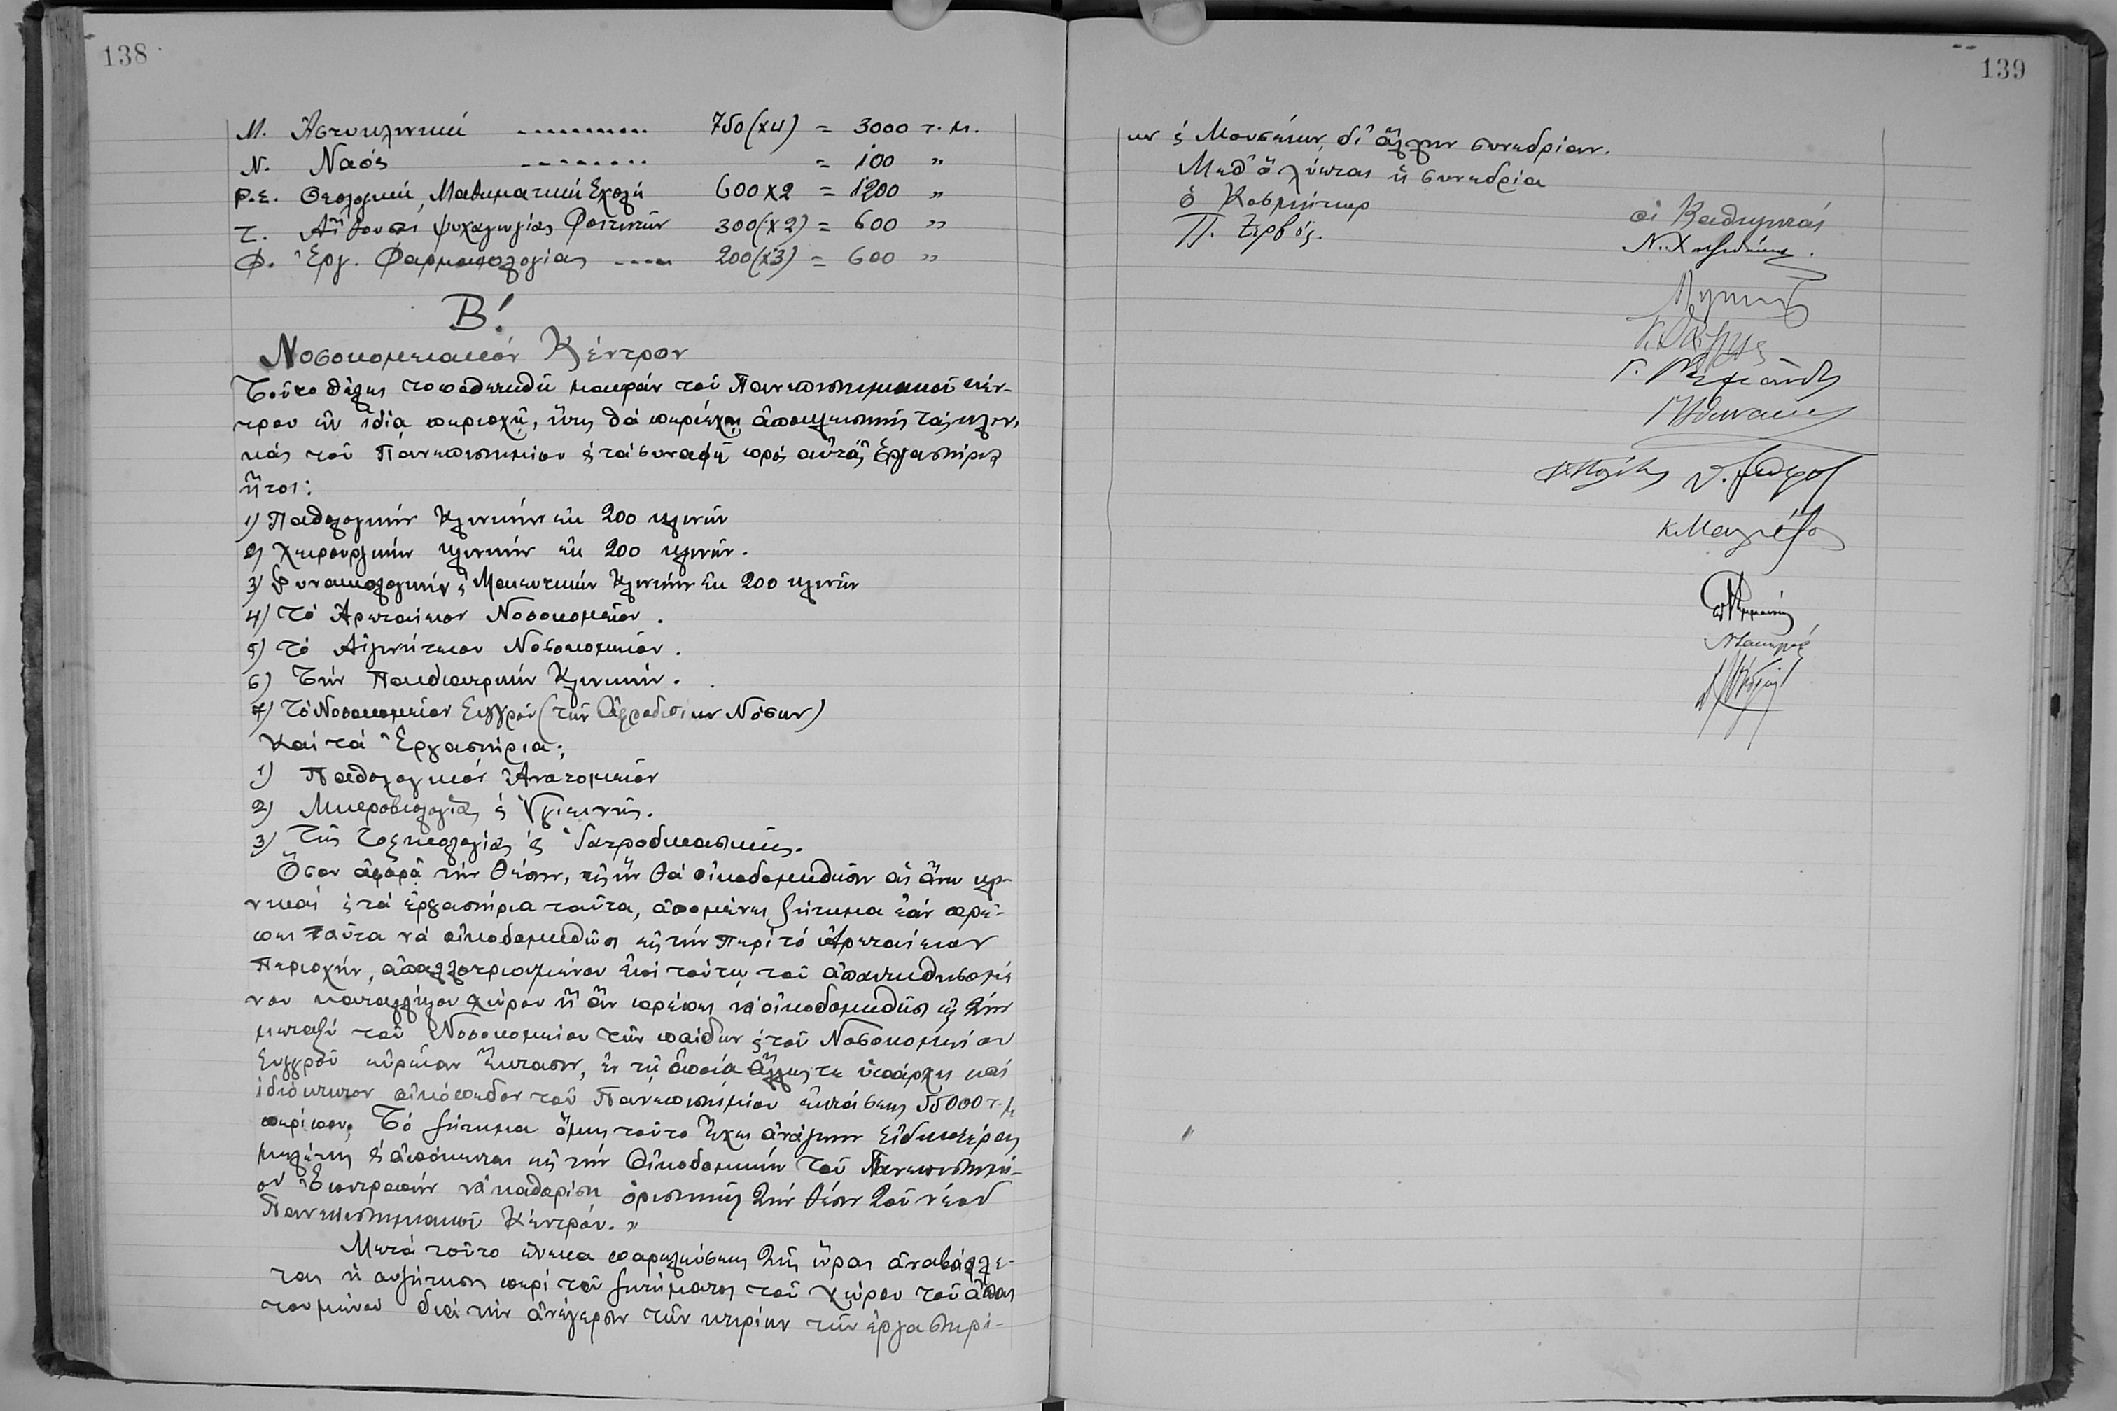 138
Μ. Ἀστυκλινική ........... 750(x4) = 3000 τ.μ.
Ν. Ναός ......... = 100 "
Ρ.Σ. Θεολογική, Μαθηματική Σχολή 600x2 = 1200 "
Τ. Αἴθουσαι ψυχαγωγίας Φοιτητῶν 300(x2) = 600 "
Φ. Ἐργ. Φαρμακολογίας ..... 200(x3) = 600 "
Β!
Νοσοκομειακόν Κέντρον
Τοῦτο θέλει τοποθετηθῆ μακράν τοῦ Πανεπιστημιακοῦ κέν-
τρου ἐν ἰδίᾳ περιοχῇ, ἥτις θά περιέχῃ ἀποκλειστικῶς τάς κλινι-
κάς τοῦ Πανεπιστημίου ϛ τά συναφῆ πρός αὐτάς ἐργαστήρια
ἤτοι:
1) Παθολογικήν Κλινικήν ἐκ 200 κλινῶν
2) Χειρουργικήν κλινικήν ἐκ 200 κλινῶν.
3) Γυναικολογικήν ϛ Μαιευτικήν Κλινικήν ἐκ 200 κλινῶν
4) Τό Ἀρεταίειον Νοσοκομεῖον.
5) Τό Αἰγινήτειον Νοσοκομεῖον.
6) Τήν Παιδιατρικήν Κλινικήν.
7) Τό Νοσοκομεῖον Συγγροῦ (τῶν Ἀφροδισίων Νόσων)
Καί τά Ἐργαστήρια:
1) Παθολογικόν Ἀνατομεῖον
2) Μικροβιολογίας ϛ Ὑγιεινῆς.
3) Τῆς Τοξικολογίας ϛ Ἰατροδικαστικῆς.
Ὅσον ἀφορᾷ τήν θέσιν, εἰς ἥν θά οἰκοδομηθῶσιν αἱ ἄνω κλι-
νικαί ϛ τά ἐργαστήρια ταῦτα, ἀπομένει ζήτημα ἐάν πρέ-
πει ταῦτα νά οἰκοδομηθῶσι εἰς τήν περί τό Ἀρεταίειον
Περιοχήν, ἀπαλλοτριουμένου ἐπί τούτῳ τοῦ ἀπαιτηθησομέ
νου καταλλήλου χώρου ἤ ἄν πρέπει νά οἰκοδομηθῶσι εἰς τήν
μεταξύ τοῦ Νοσοκομείου τῶν παίδων ϛ τοῦ Νοσοκομείου
Συγγροῦ εὐρεῖαν ἔκτασιν, ἐν τῇ ὁποίᾳ ἄλλως τε ὑπάρχει καί
ἰδιόκτητον οἰκόπεδον τοῦ Πανεπιστημίου ἐκτάσεως 55000 τ.μ
περίπου. Τό ζήτημα ὅμως τοῦτο ἔχει ἀνάγκην εἰδικωτέρας
μελέτης ϛ ἀπόκειται εἰς τήν Οἰκοδομικήν τοῦ Πανεπιστημί-
ου Ἐπιτροπήν νά καθορίσῃ ὁριστικῶς τήν θέσιν τοῦ νέου
Πανεπιστημιακοῦ Κέντρου."
Μετά τοῦτο ἕνεκα παρελεύσεως τῆς ὥρας ἀναβάλλε-
ται ἡ συζήτησις περί τοῦ ζητήματος τοῦ χώρου τοῦ ἀπαι
τουμένου διά τήν ἀνέγερσιν τῶν κτιρίων τῶν ἐργαστηρί-
139
ων ϛ Μουσείων, δι' ἄλλην συνεδρίαν.
Μεθ' ὅ λύεται ἡ συνεδρία
ὁ Κοσμήτωρ
Π. Ζερβός.
οἱ Καθηγηταί
Ν. Χατζιδάκις.